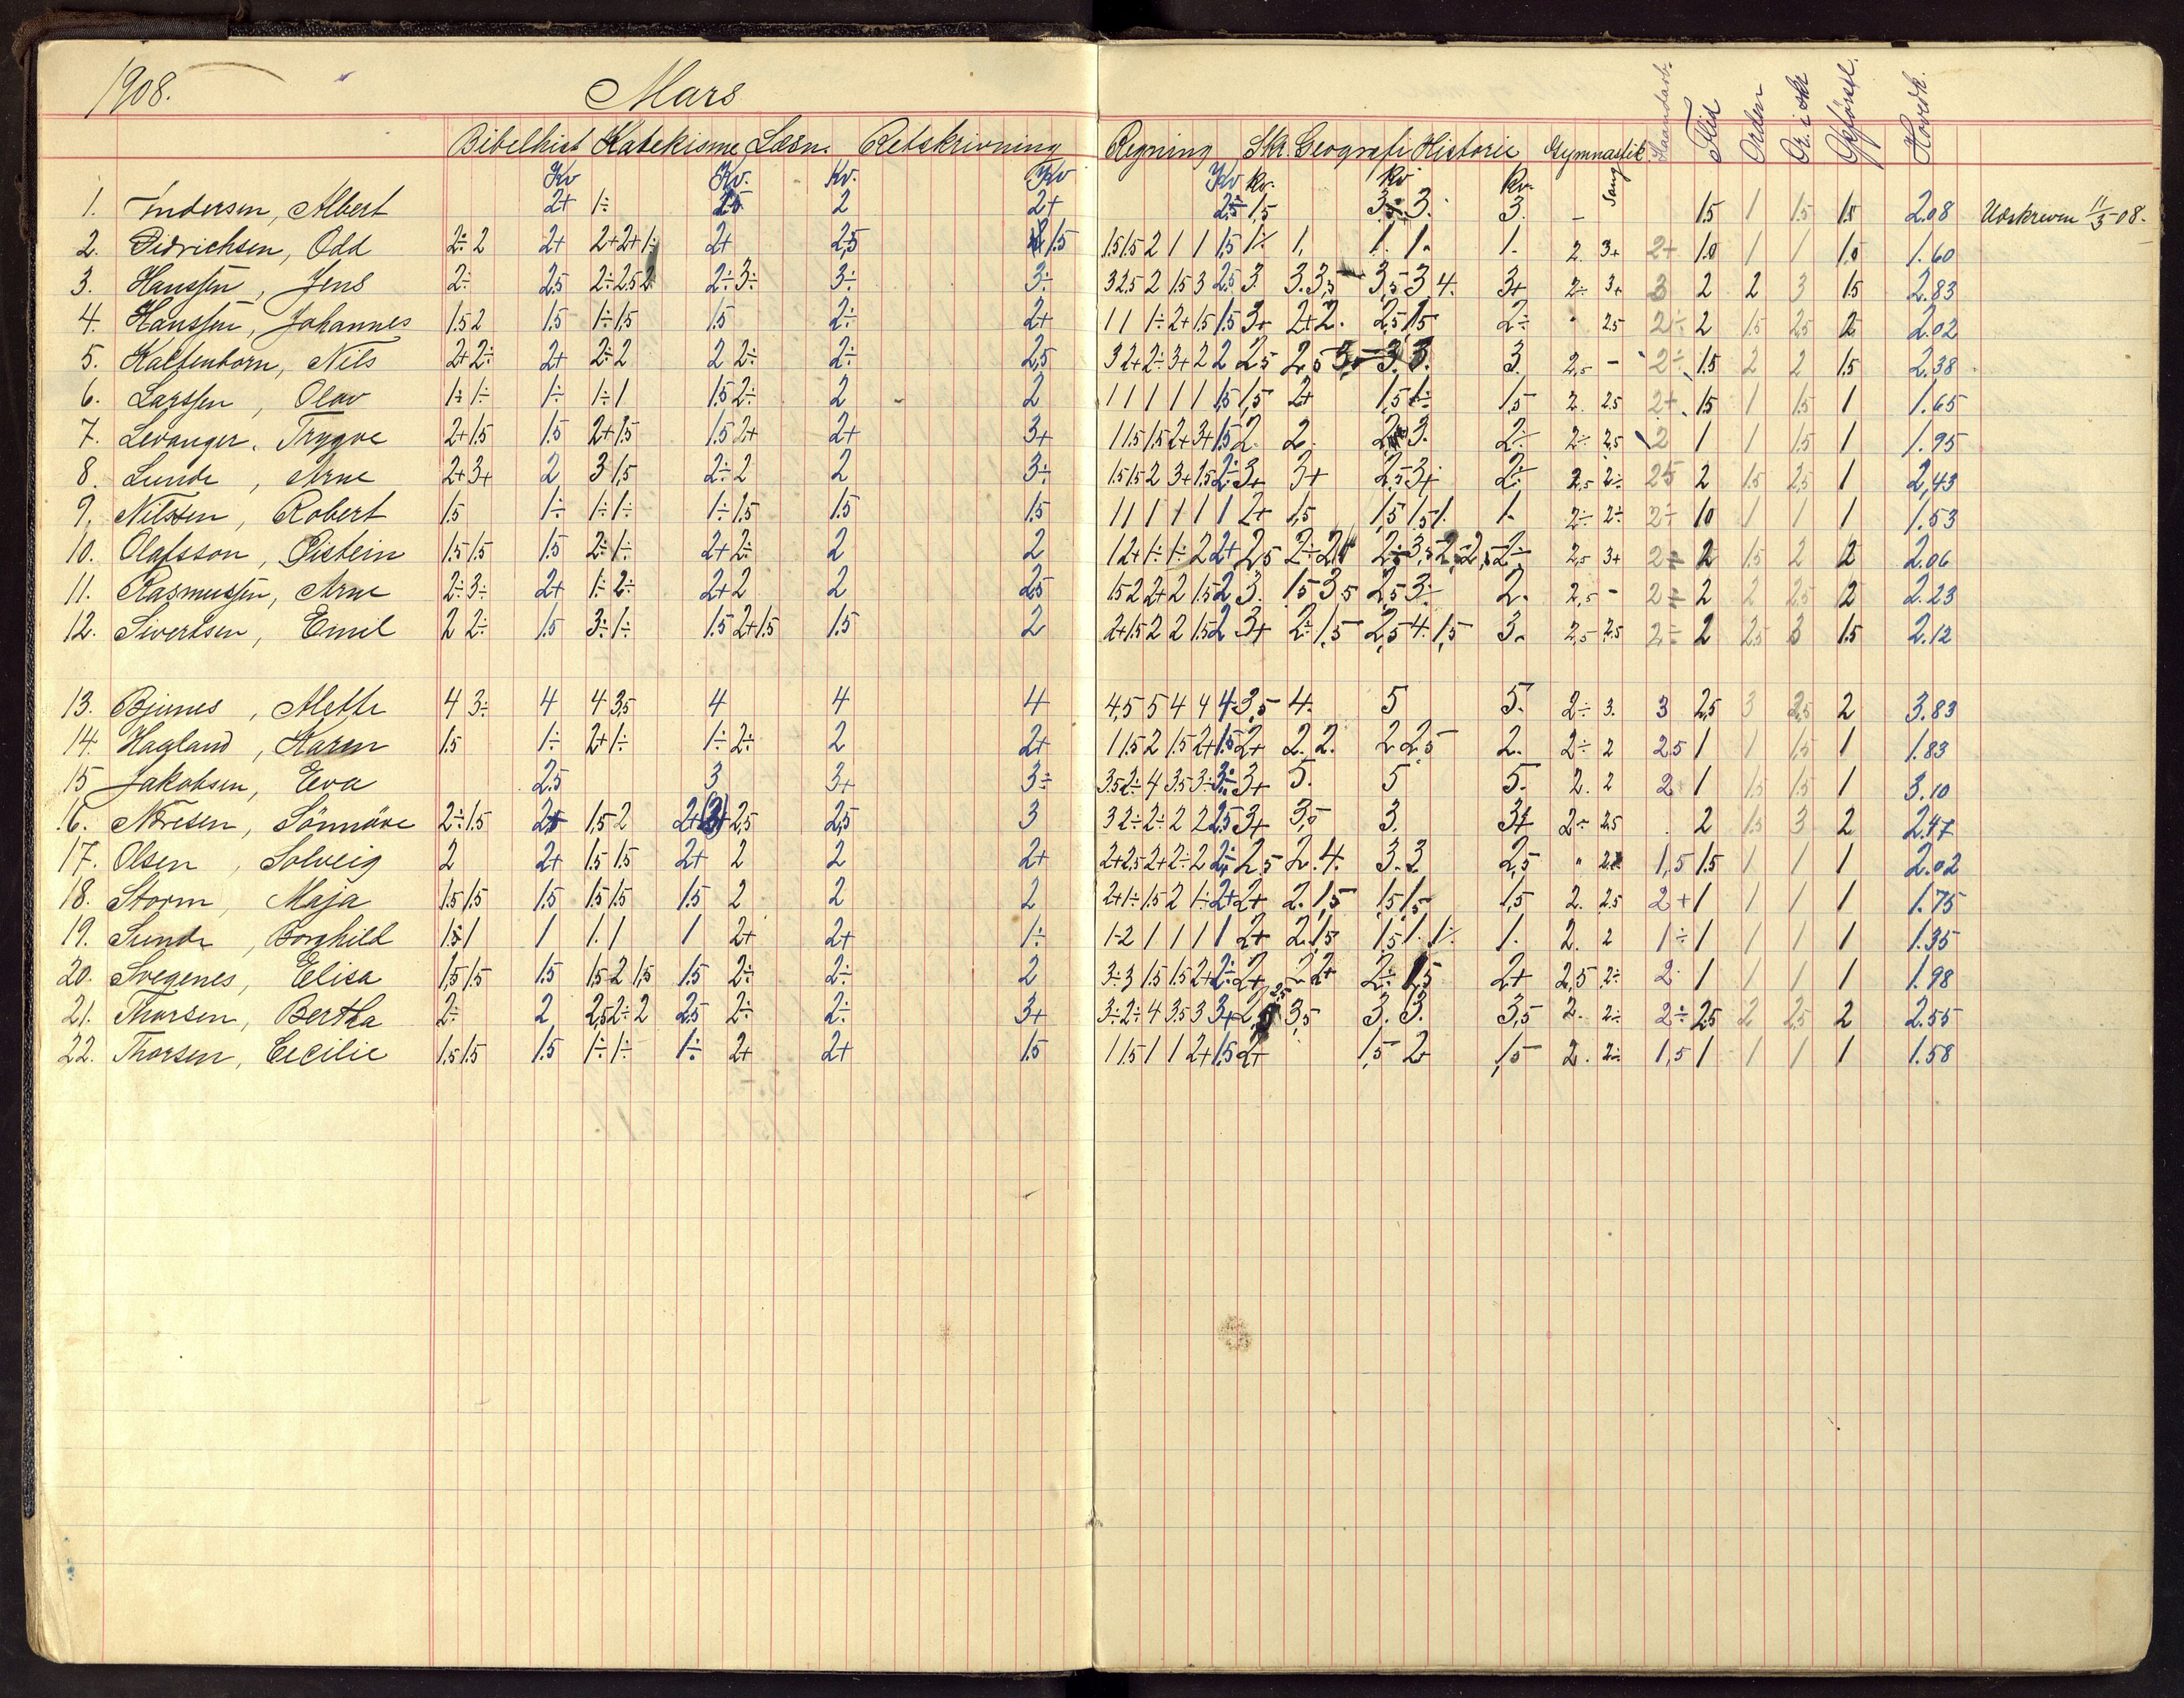 1908. Mars
Haandarb. Flid Orden Or. i skr Opførsel. Hovedk.
Bibelhist Katekisme Læsn. Retskrivning Regning Skr. Geografi Historie Gymnastik Sang
Kv Kv. Kv. Kv Kv kv. kv kv.
1. Andersen, Albert 2+ 1÷ 2 2+ 1,5 3. 3. - 1.5 1 1.5 1.5 2.08 Udskreven 11/3 08.
2. Didrichsen, Odd 2÷ 2 2+ 2+ 2+ 1÷ 2+ 2,5 1.5 1.5 1.5 2 1 1 1,5 1÷ 1, 1. 1. 1. 2. 3+ 2+ 1.0 1 1 1.0 1.60
3. Hanssen, Jens 2÷ 2.5 2÷ 2.5 2 2÷ 3÷ 3÷ 3÷ 3 2.5 2 1.5 3 2.5 3. 3. 3,5 3,5 3 4. 3+ 2÷ 3+ 3 2 2 3 1.5 2.83
4. Hanssen, Johannes 1.5 2 1.5 1÷ 1.5 1.5 2÷ 2+ 1 1 1÷ 2+ 1.5 1.5 3+ 2+ 2. 2,5 1,5 2÷ " 2.5 2÷ 2 1.5 2.5 2 2.02
5. Kaltenborn, Nils 2+ 2÷ 2+ 2÷ 2 2 2÷ 2÷ 2,5 3 2+ 2÷ 3+ 2 2 2,5 2,5 3. 3. 3. 2,5 - 2÷ 1.5 2 2 1.5 2.38
6. Larssen, Olav 1÷ 1÷ 1÷ 1÷ 1 1.5 2÷ 2 2 1 1 1 1 1 1,5 1,5 2+ 1,5 1÷ 1,5 2. 2.5 2+ 1.5 1 1.5 1 1.65
7. Levanger, Trygve 2+ 1.5 1.5 2+ 1.5 1.5 2+ 2+ 3+ 1 1.5 1.5 2+ 3+ 1.5 2. 2. 3. 2÷ 2÷ 2,5 2 1 1 1.5 1 1.95
8. Lunde, Arne 2+ 3+ 2 3 1,5 2÷ 2 2 3÷ 1.5 1.5 2 3+ 1.5 2÷ 3+ 3+ 2,5 3+ 2÷ 2,5 2÷ 2.5 2 1.5 2.5 1 2,43
9. Nilssen, Robert 1.5 1÷ 1÷ 1÷ 1÷ 1.5 1.5 1.5 1 1 1 1 1 1 2+ 1,5 1,5 1,5 1. 1. 2÷ 2÷ 2÷ 1.0 1 1 1 1.53
10. Olafsson, Øistein 1.5 1.5 1.5 2÷ 1÷ 2+ 2÷ 2 2 1 2+ 1÷ 1÷ 2 2+ 2,5 2÷ 2÷ 2÷ 2,5 3+ 2÷ 2 1.5 2 2 2.06
11. Rasmussen, Arne 2÷ 3÷ 2+ 1÷ 2÷ 2+ 2 2 2.5 1.5 2 2+ 2 1.5 2 3. 1,5 3,5 2,5 3÷ 2. 2,5 - 2÷ 2 2 2.5 2 2.23
12. Sivertsen, Emil 2 2÷ 1.5 3÷ 1÷ 1.5 2+ 1.5 1.5 2 2+ 1.5 2 2 1.5 2 3+ 2÷ 1,5 2,5 4. 1,5 3. 2,5 2.5 2÷ 2 2.5 3 1.5 2.12
13. Bjernes, Mette 4 3÷ 4 4 3,5 4 4 4 4,5 5 4 4 4 3,5 4. 5 5. 2÷ 3. 3 2,5 3 2,5 2 3.83
14. Hagland, Karen 1.5 1÷ 2+ 1÷ 1÷ 2÷ 2 2+ 1 1.5 2 1.5 2+ 1.5 2+ 2. 2. 2 2,5 2. 2÷ 2 2.5 1 1 1.5 1 1.83
15 Jakobsen, Eva 2.5 3 3+ 3÷ 3.5 2÷ 4 3.5 3÷ 3÷ 3+ 5. 5 5. 2. 2 2+ 1 1.5 1.5 1 3.10
16. Noresen, Sønnøve 2÷ 1.5 1,5 2 2,5 2,5 3 3 2÷ 2÷ 2 2 2.5 3+ 3,5 3. 3+ 2÷ 2.5 2 1.5 3 2 2.47
17. Olsen, Solveig 2 2+ 1.5 1.5 2+ 2 2 2+ 2+ 2.5 2+ 2÷ 2 2÷ 2,5 2. 4. 3. 3 2,5 " 1,5 1.5 1 1 1 2.02
18. Storm, Maja 1.5 1.5 1.5 1.5 1.5 1.5 2 2 2 2+ 1÷ 1.5 2 1÷ 2+ 2+ 2. 1,5 1,5 1,5 1,5 2. 2.5 2+ 1 1 1 1 1.75
19. Sunde, Borghild 1.5 1 1 1. 1 1 2+ 2+ 1÷ 1 2 1 1 1 1 2+ 2 1,5 1,5 1. 1÷ 1. 2. 2 1÷ 1 1 1 1 1.35
20. Svegenes, Elisa 1,5 1.5 1.5 1.5 2 1,5 1.5 2÷ 2÷ 2 3÷ 3 1.5 1.5 2+ 2÷ 2+ 2 2+ 2÷ 1,5 2+ 2,5 2÷ 2. 1 1 1 1 1.98
21. Thorsen, Bertha 2÷ 2 2,5 2÷ 2 2,5 2÷ 2÷ 3+ 3÷ 2÷ 4 3.5 3 3+ 2,5 3,5 3. 3. 3,5 2. 2÷ 2÷ 2.5 2 2.5 2 2.55
22. Thorsen, Cecilie 1.5 1.5 1.5 1÷ 1÷ 1÷ 2+ 2+ 1.5 1 1.5 1 1 2+ 1.5 2+ 1,5 2+ 1,5 2. 2÷ 1,5 1 1 1 1 1.58